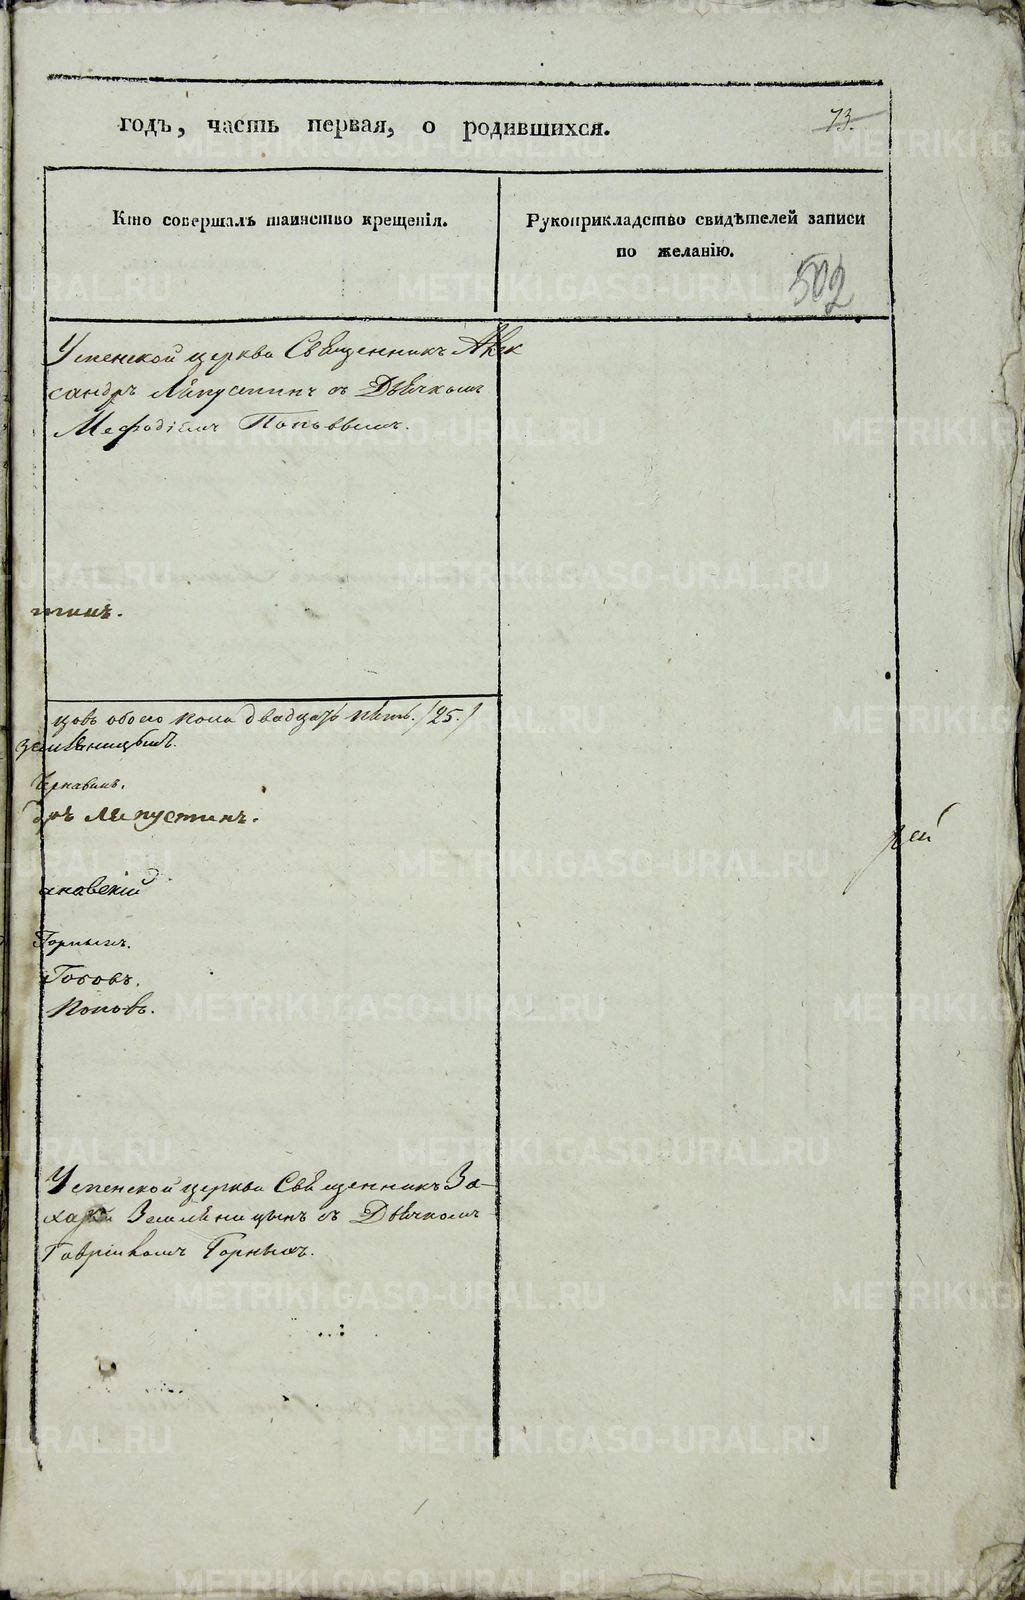 годъ, часть первая, о родившихся.
73.
Кто совершалъ таинство крещенія.
Рукоприкладство свидѣтелей записи
по желанію.
502
Успенской церкви Священникъ Алек
сандръ Лѣпустинъ съ Дьячкомъ
Мефодіемъ Поповымъ.
стинъ.
цовъ обоего пола двадцать пять. /25./
Земляницынъ.
Чернавинъ.
дръ Лѣпустинъ.
ановскій
рей
Горныхъ.
Поповъ.
Успенской церкви Священникъ За-
харій Земляницынъ съ Дьячкомъ
Гавріиломъ Горныхъ.
METRIKI.GASO-URAL.RU